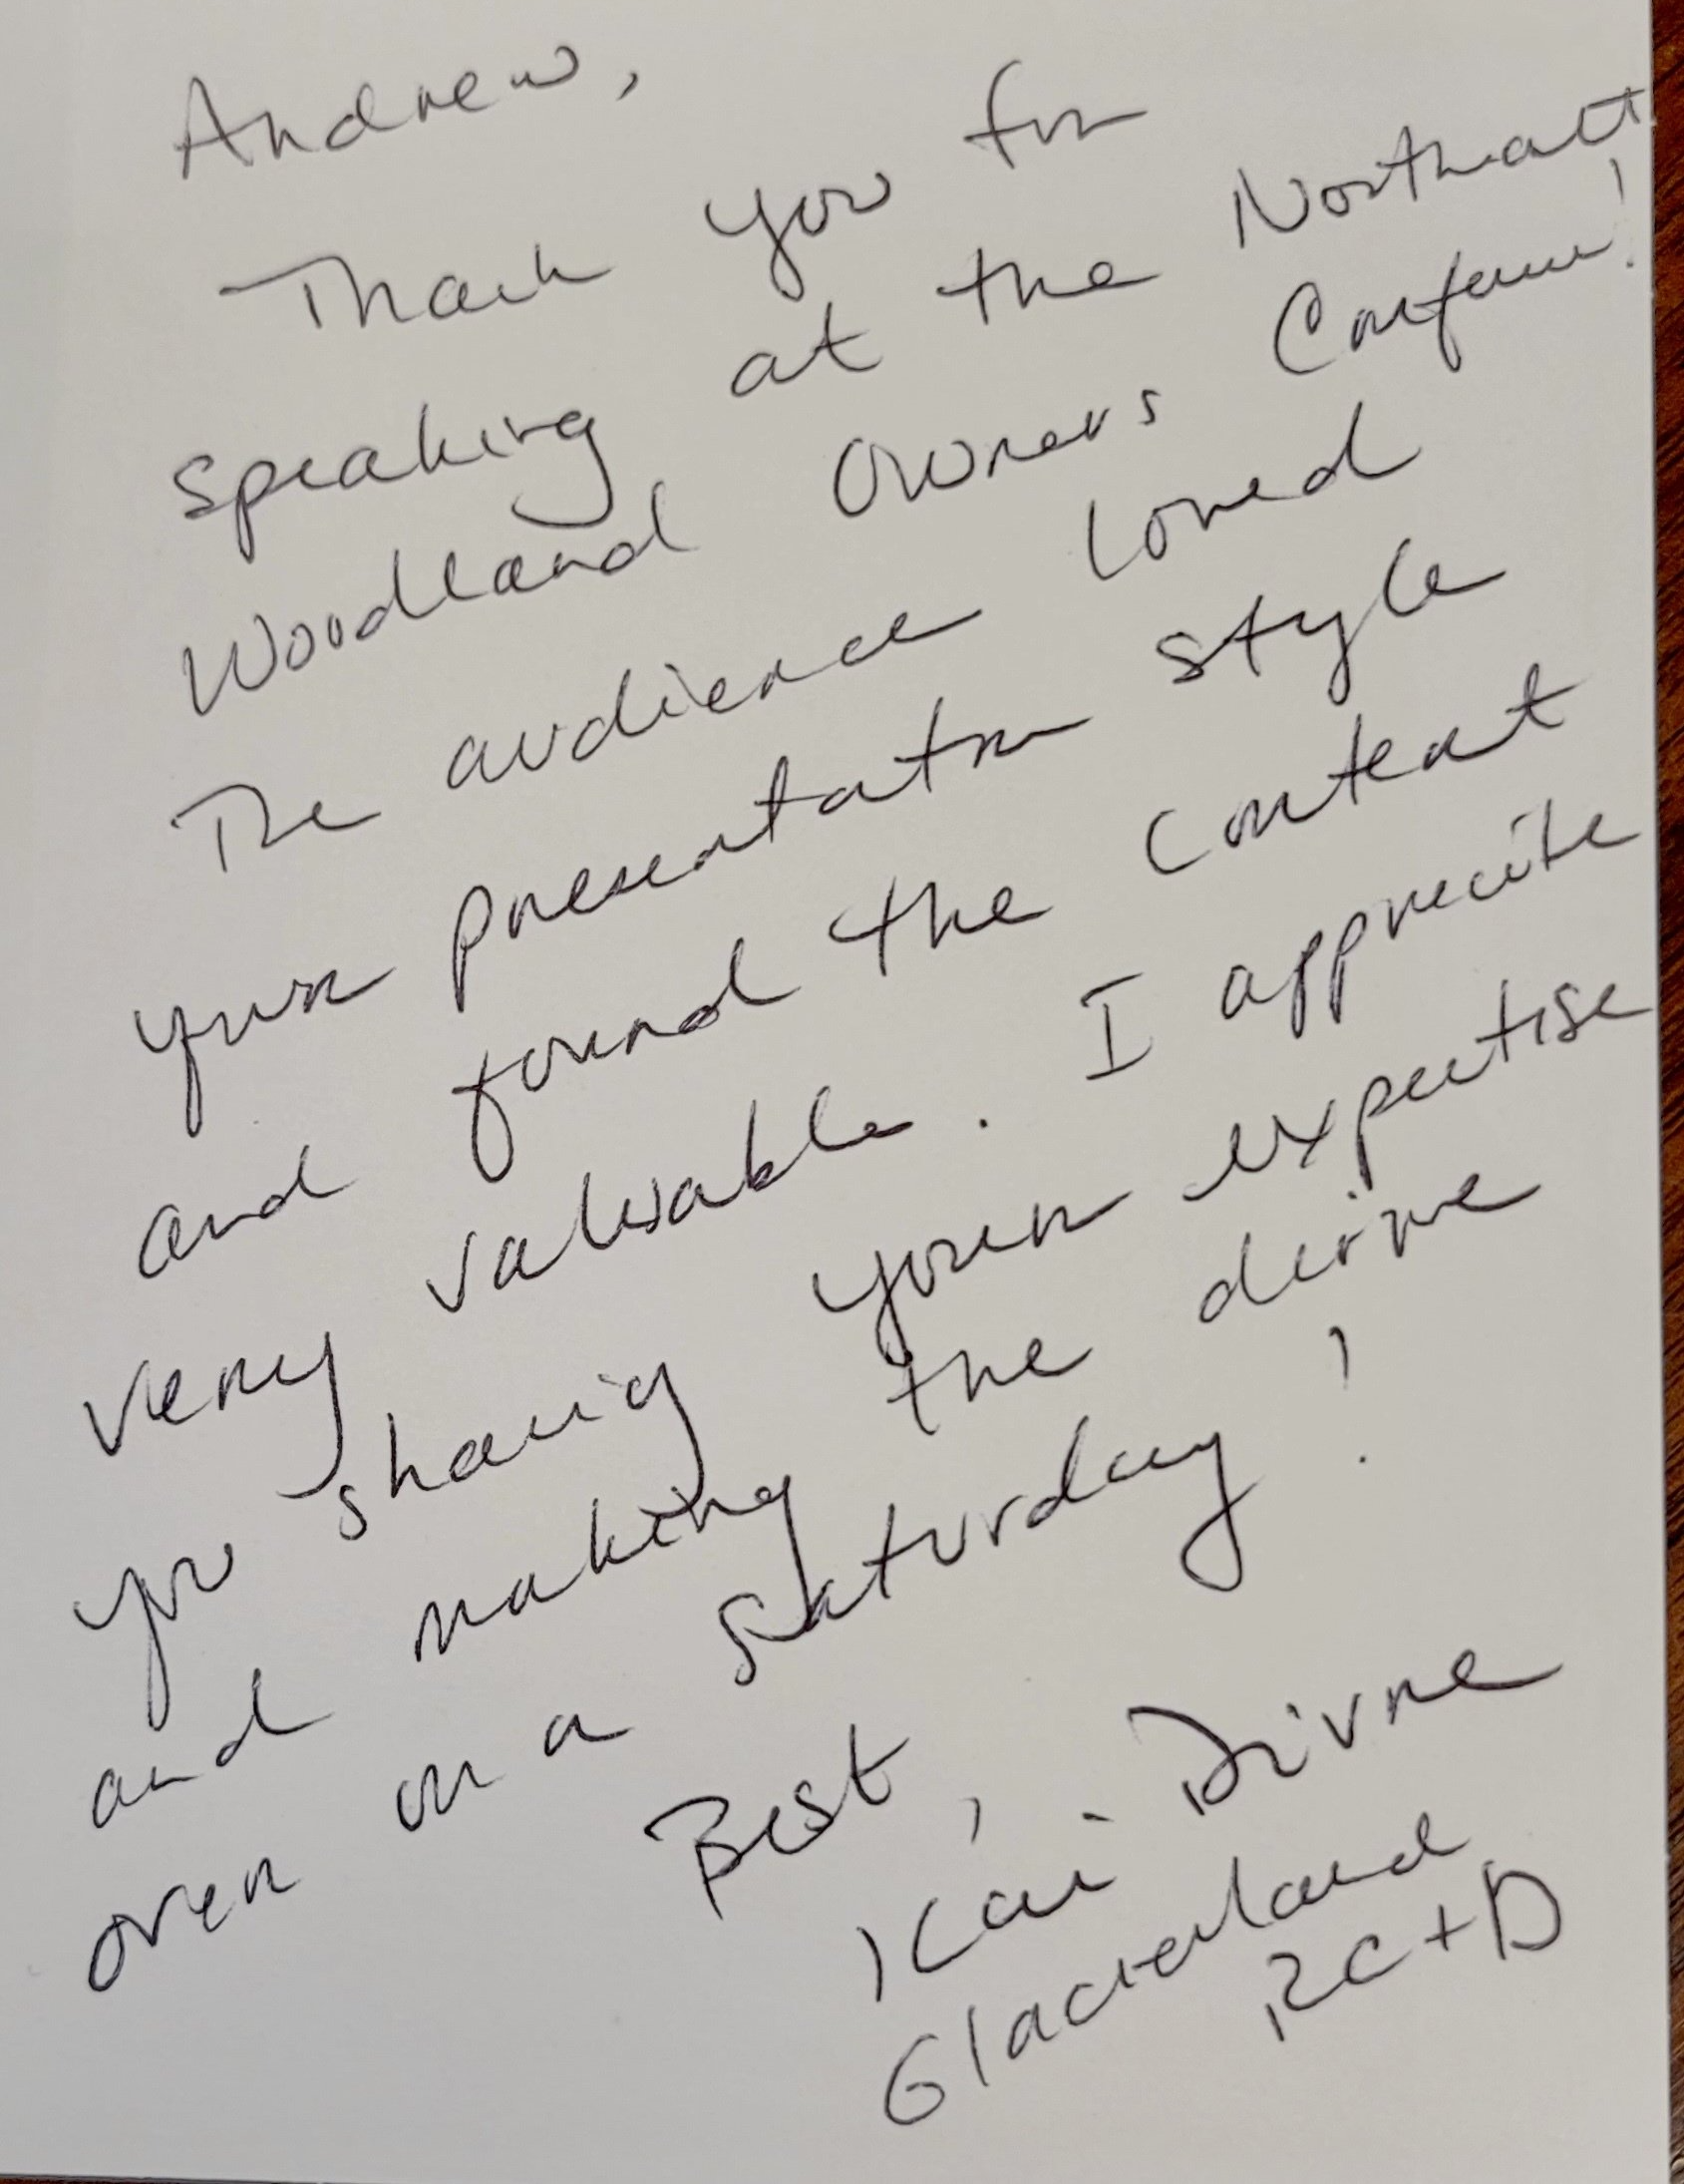 Andrew,
Thank you for
speaking at the Northeast
Woodland Owners Conference!
The audience loved
your presentation style
and found the content
very valuable. I appreciate
you sharing your expertise
and making the drive
over on a Saturday!
Best,
Kari Divine
Glacierland
RC+D